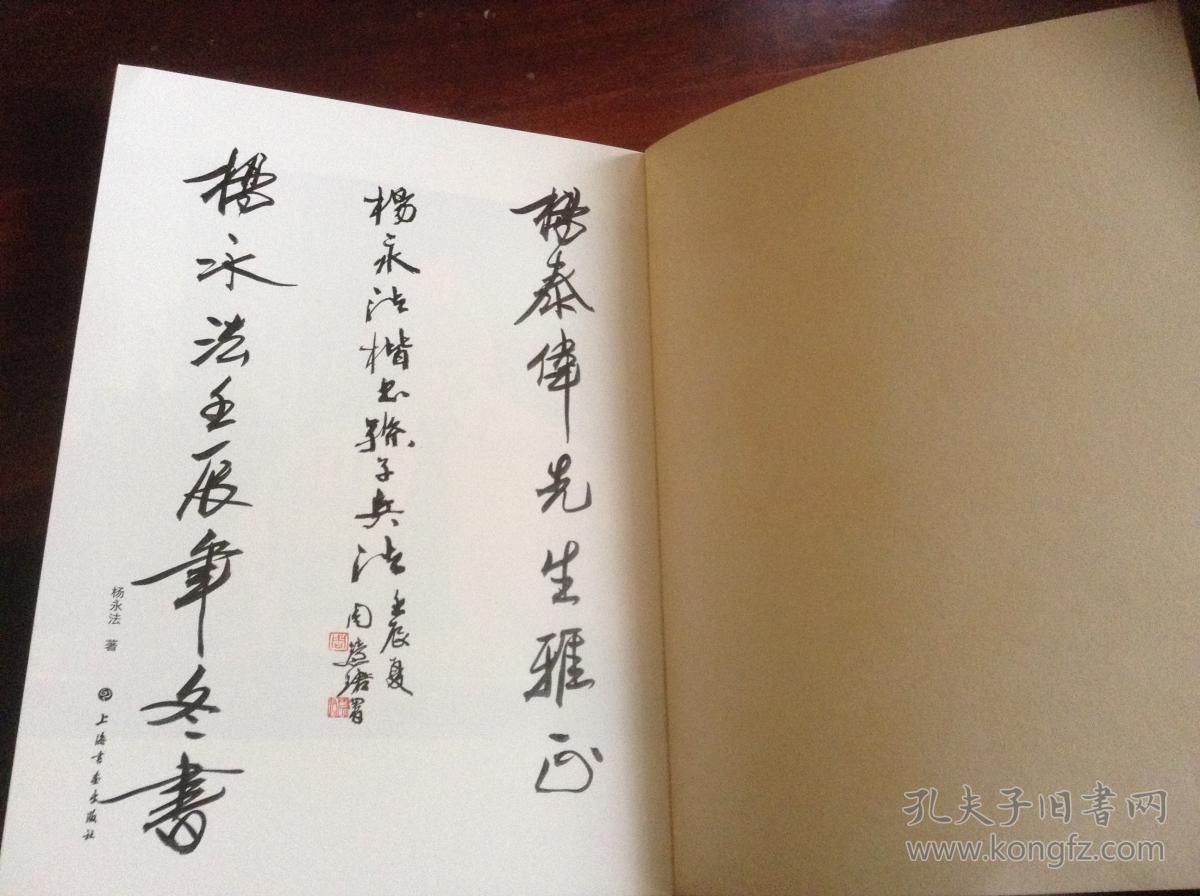 楊泰偉先生雅正
楊永法楷书孫子兵法
壬辰夏
周慧珺署
楊永法壬辰年冬書
杨永法 著
上海书画出版社
孔夫子旧书网
www.kongfz.com